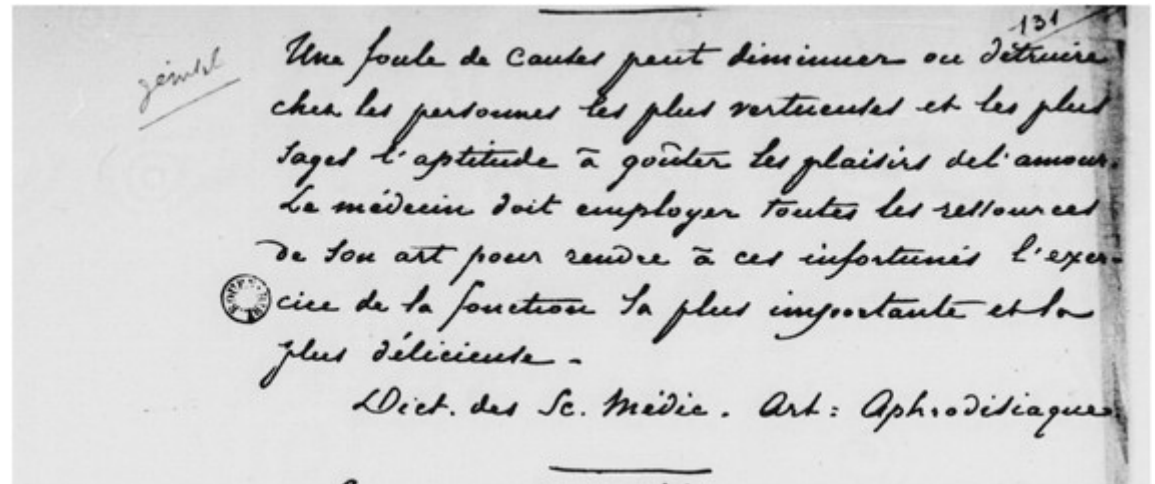 131
génital
Une foule de causes peut diminuer ou détruire
chez les personnes les plus vertueuses et les plus
sages l'aptitude à goûter les plaisirs de l'amour.
Le médecin doit employer toutes les ressources
de son art pour rendre à ces infortunés l'exer-
cice de la fonction la plus importante et la
plus délicieuse.
Dict. des Sc. Médic. Art : Aphrodisiaque.